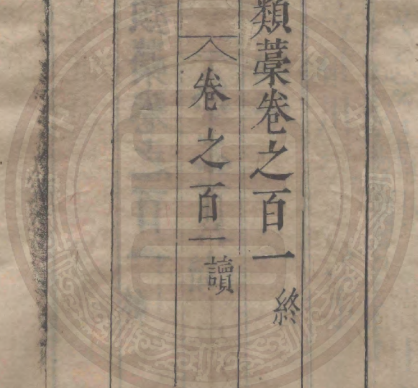 類藁卷之百一 終
卷之百一 讀